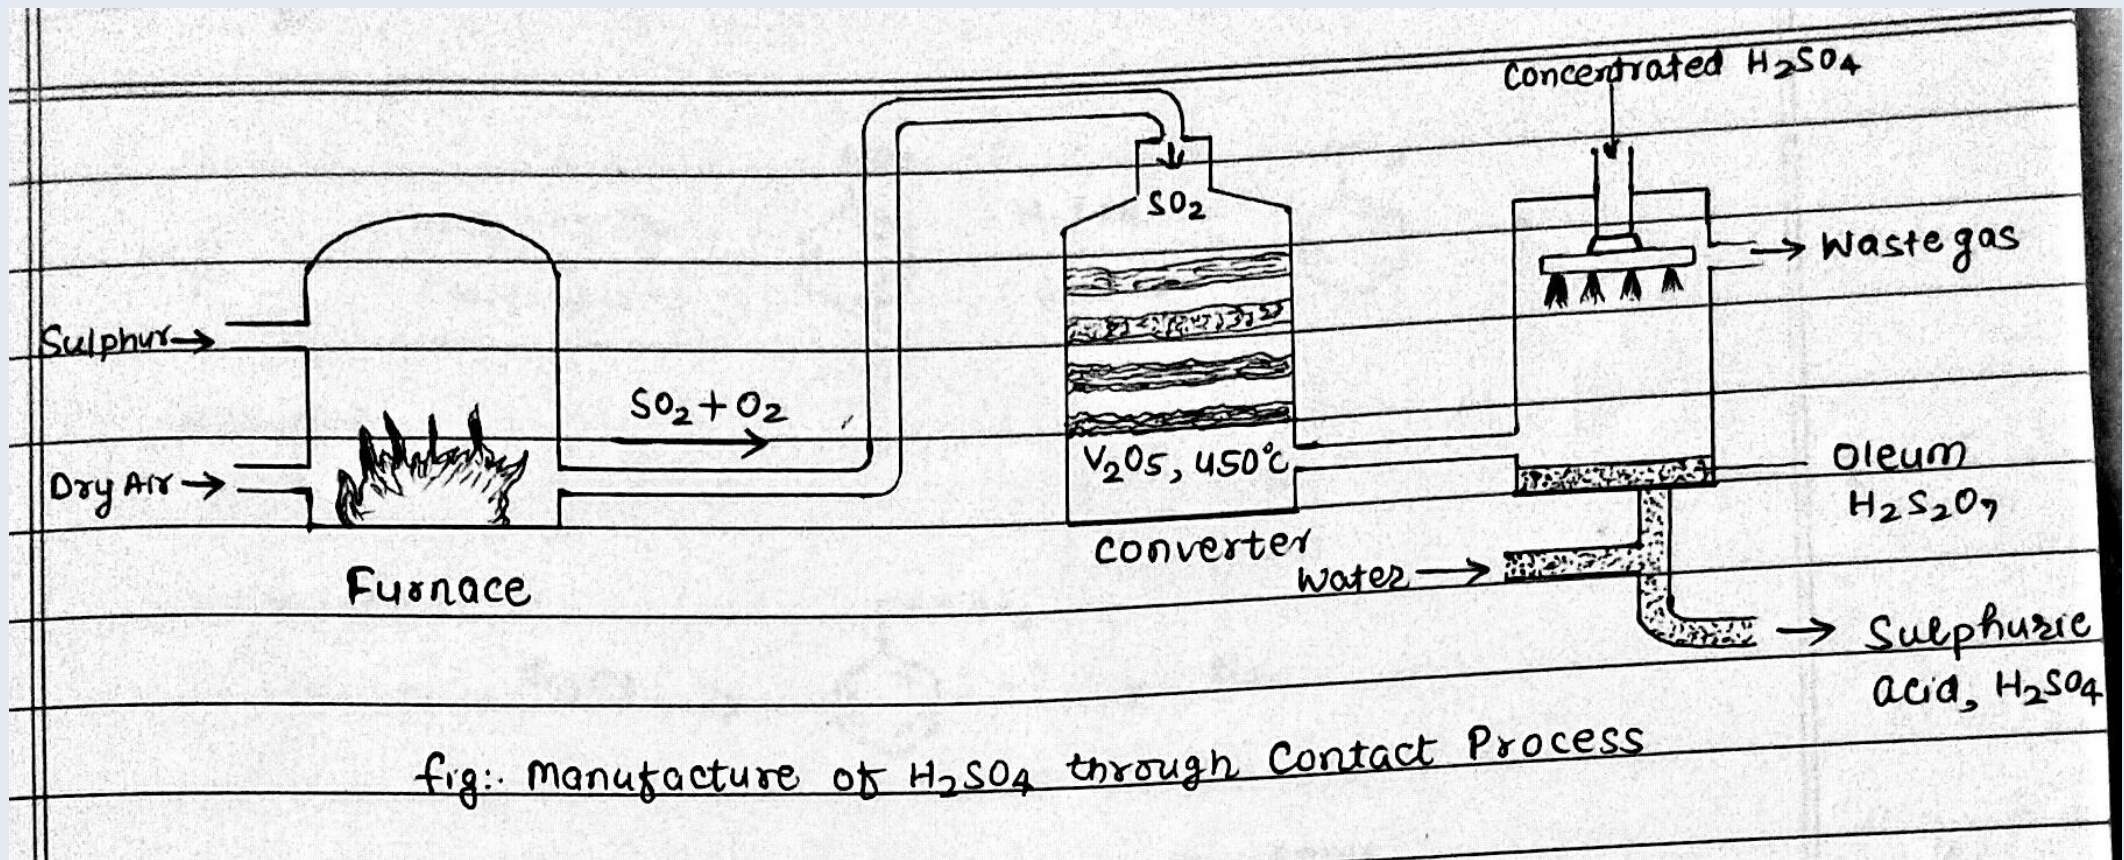 Concentrated H₂SO₄
SO₂
Waste gas
Sulphur→
SO₂ + O₂
Dry Air →
V₂O₅, 450°C
Oleum
H₂S₂O₇
Converter
Water →
Furnace
→ Sulphuric
acid, H₂SO₄
fig:. Manufacture of H₂SO₄ through Contact Process